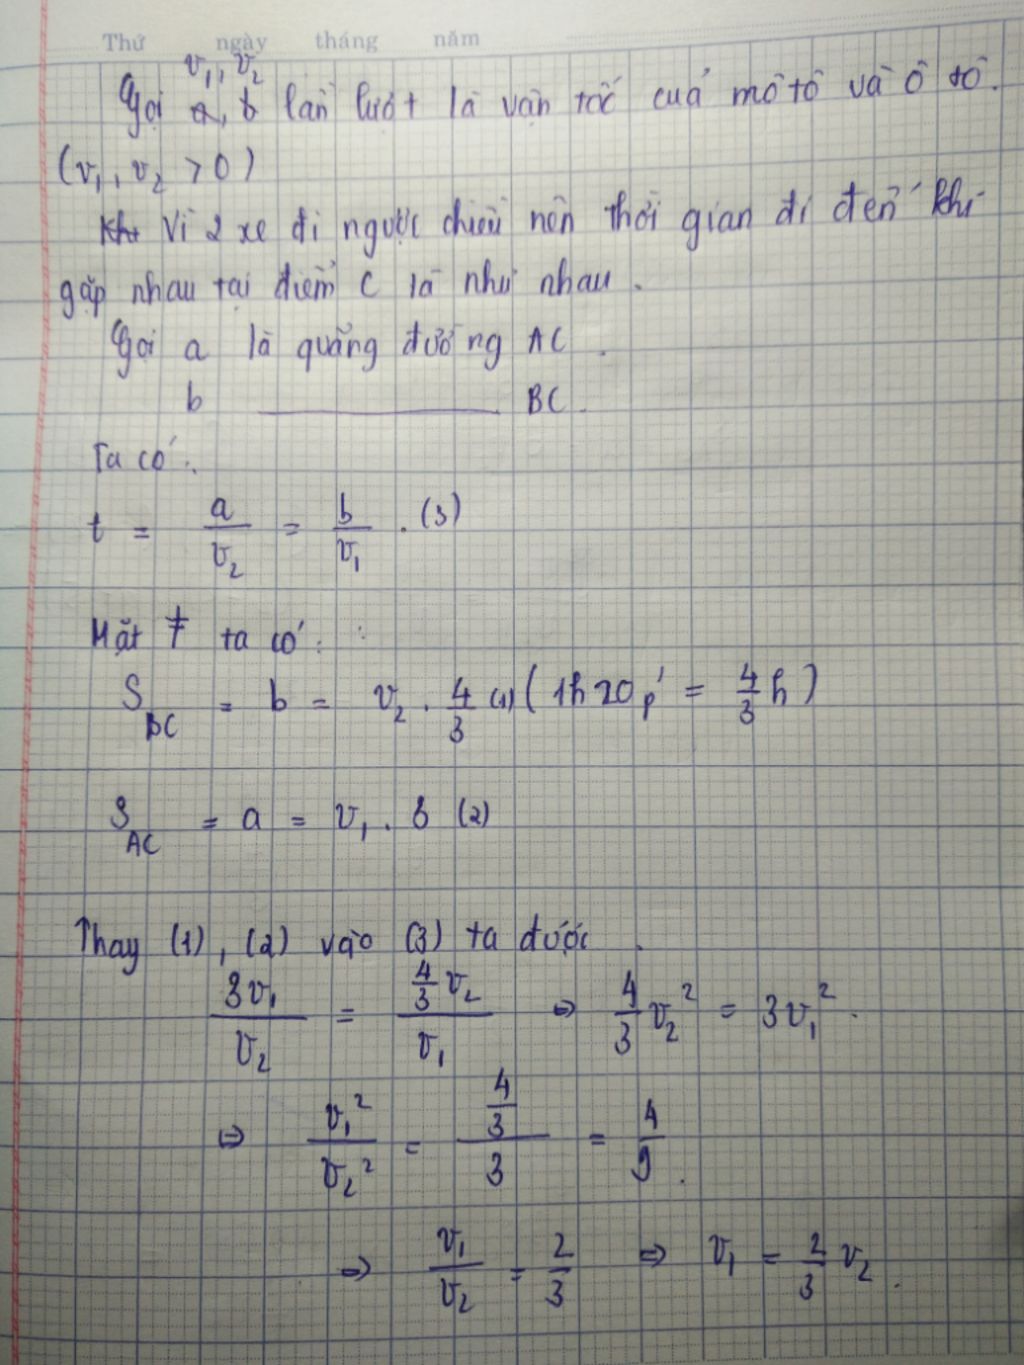 Thứ ngày tháng năm
v₁, v₂
Gọi a, b lần lượt là vận tốc của môtô và ô tô.
(v₁, v₂ > 0)
Khi Vì 2 xe đi ngược chiều nên thời gian đi đến khi
gặp nhau tại điểm C là như nhau.
Gọi a là quãng đường AC.
b ———— BC.
Ta có:
t = a/v₂ = b/v₁ . (3)
Mặt ≠ ta có:
S_BC = b = v₂ . 4/3 (1) (1h20p' = 4/3 h)
S_AC = a = v₁ . 3 (2)
Thay (1), (2) vào (3) ta được.
3v₁/v₂ = (4/3 v₂)/v₁ ⇒ 4/3 v₂² = 3v₁².
⇒ v₁²/v₂² = (4/3)/3 = 4/9.
⇒ v₁/v₂ = 2/3 ⇒ v₁ = 2/3 v₂.